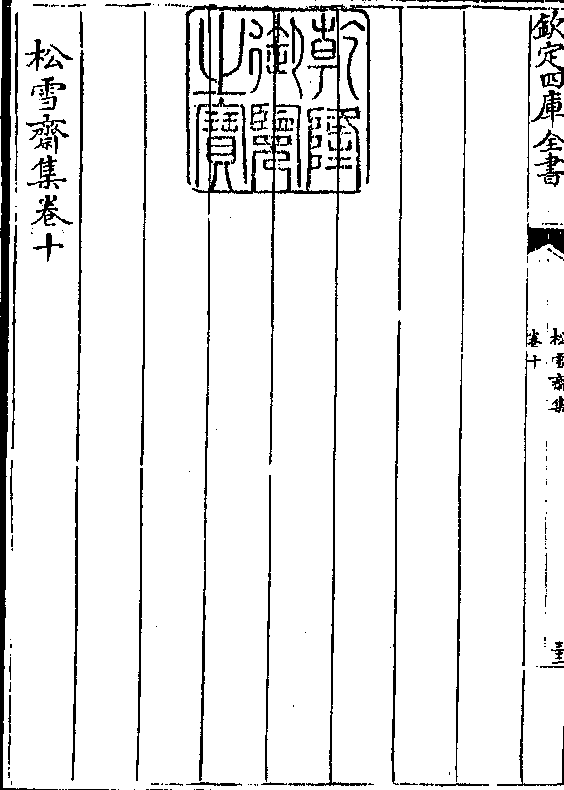 欽定四庫全書
松雪齋集
卷十
乾隆御覽之寶
松雪齋集卷十